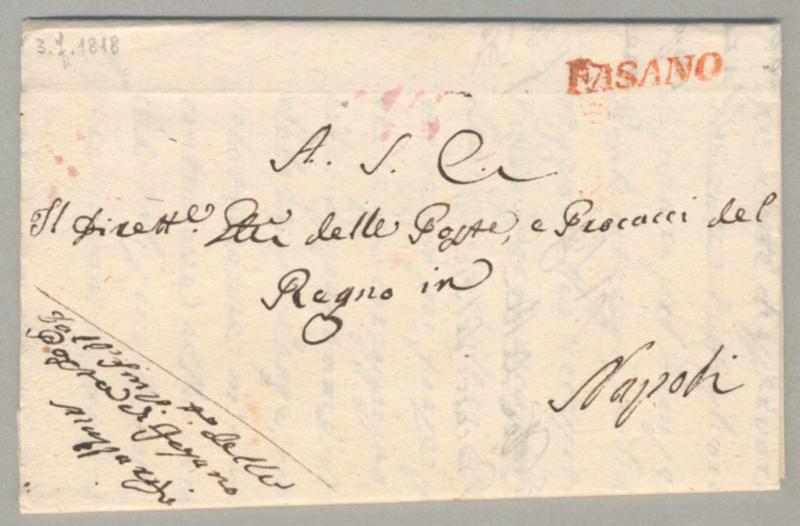 3.7.1818
FASANO
A. S. E.
Il Dirett.e delle Poste, e Procacci del
Regno in
Napoli
delle
Posta di Fasano